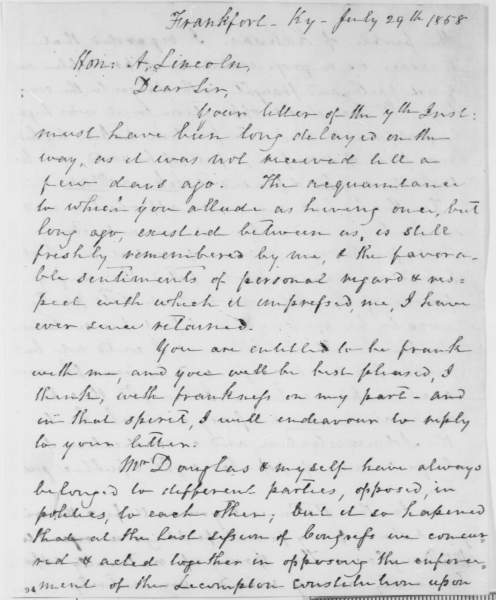 Frankfort - Ky - July 29th 1858
Hon: A. Lincoln,
Dear Sir,
Your letter of the 7th Inst:
must have been long delayed on the
way, as it was not received till a
few days ago. The acquaintance
to which you allude as having once, but
long ago, existed between us, is still
freshly remembered by me, & the favora-
ble sentiments of personal regard & res-
pect with which it impressed me, I have
ever since retained.
You are entitled to be frank
with me, and you will be best pleased, I
think, with frankness on my part - and
in that spirit, I will endeavour to reply
to your letter.
Mr Douglas & myself have always
belonged to different parties, opposed, in
politics, to each other; but it so hapened
that at the last session of Congress we concur-
red & acted together in opposing the enforce-
ment of the Lecompton constitution upon